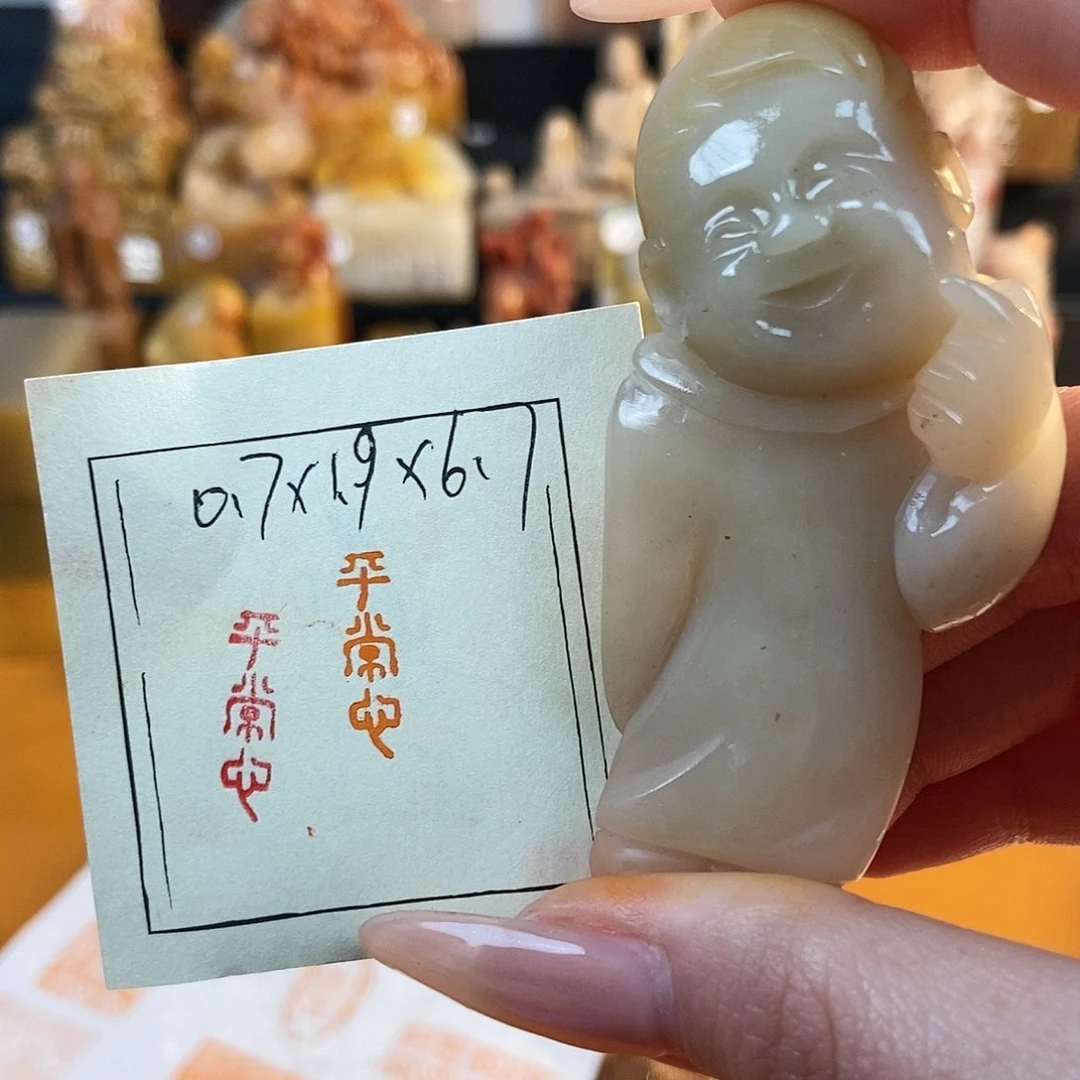 0.7×1.9×6.7
平常心
平常心